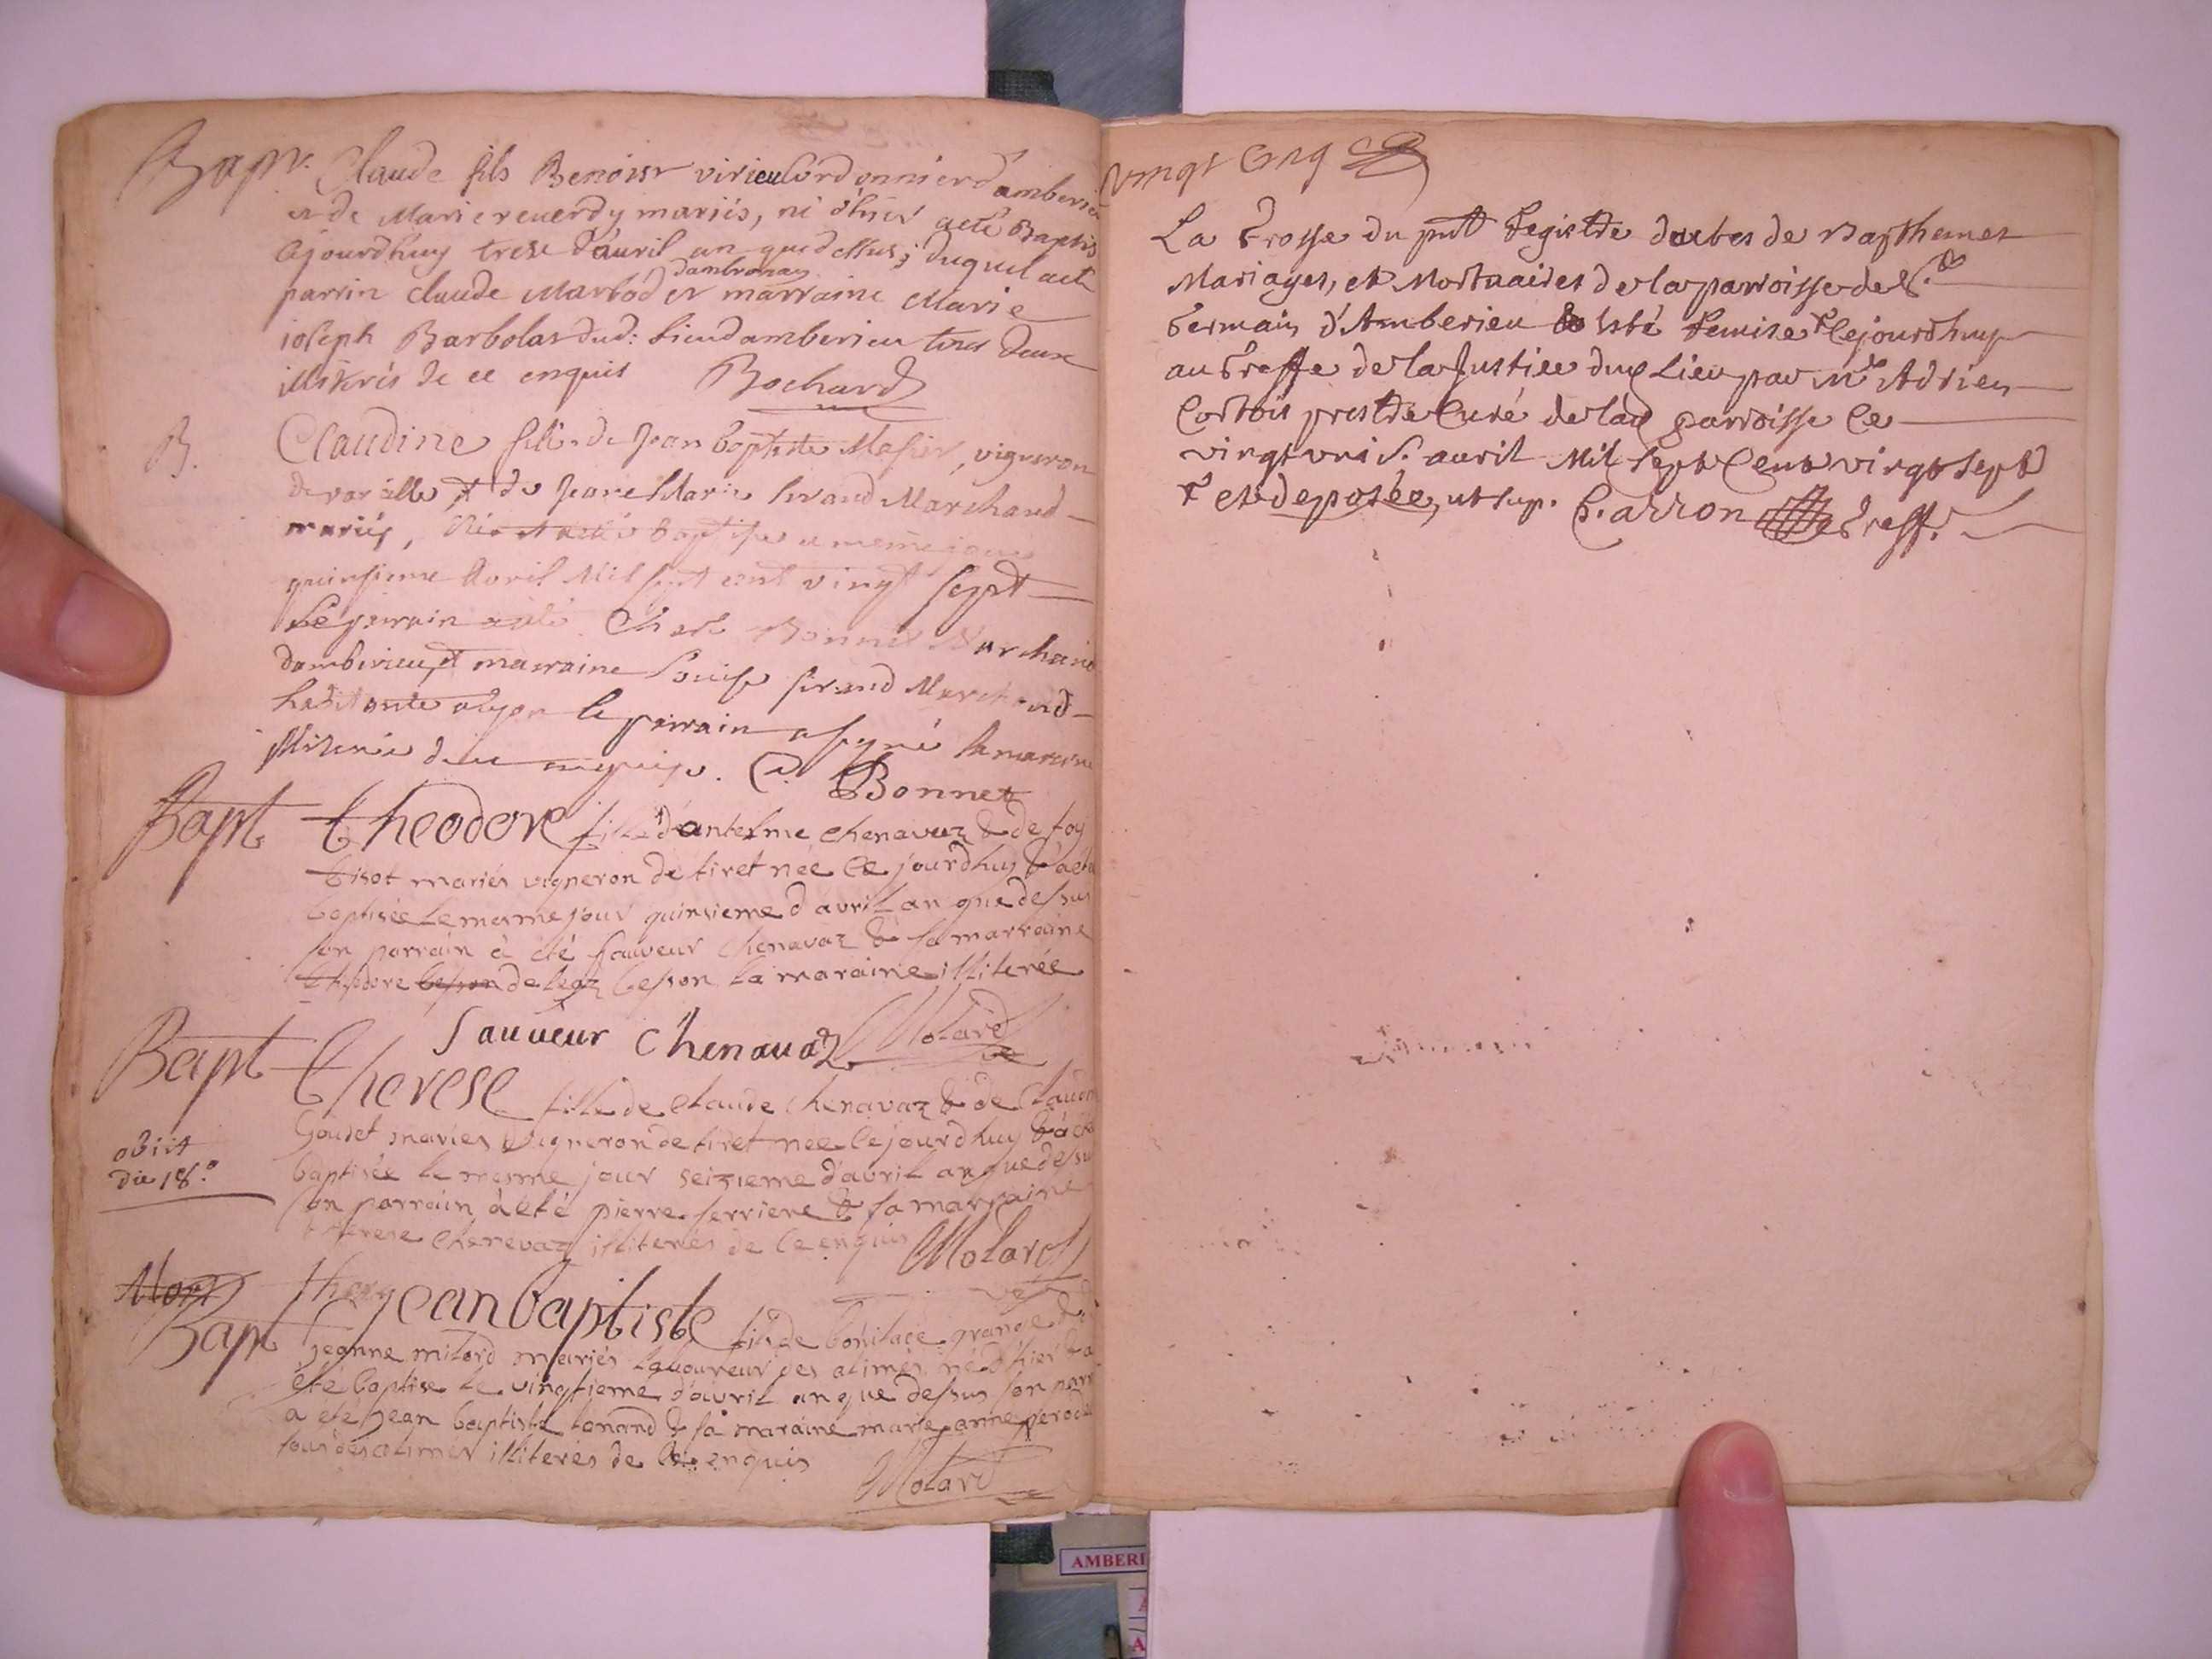 Bapt. Claude fils Benoist virieu Cordonnier d'amberieu
et de Marie reverdy mariés, né d'hier a eté Baptisé
cejourdhuy treze d'avril an que dessus; duquel a eté
parrin Claude Marbod dambronay et marraine Marie
joseph Barbolat dud: Lieu d'amberieu tous deux
illiterés de ce enquis Bochard
B. Claudine fille de Jean baptiste vigneron
de vareille et de Marie Marchand
mariés, née et a eté baptisée a meme jour
quinsieme Avril Mil sept cent vingt sept
Le parrain a eté Bonnet Marchand
damberieu, et marraine Marchand
habitante a lyon le parrain a signé la marraine
illiterée de ce enquise. C. Bonnet
Bapt theodore fille d'antelme chenavaz & de foy
tisot mariés vigneron de tiret née ce jourdhuy & a eté
baptisée le mesme jour quinsieme d'avril an que dessus
son parrain à eté sauveur chenavaz & sa marraine
theodore besson de besson la maraine illiterée
Sauveur Chenavaz Molard
vic
Bapt Therese fille de Claude Chenavaz & de Claudine
Goudet mariés vigneron de tiret née cejourdhuy & à eté
obiit
die 18.° baptisée le mesme jour seizieme d'avril an que dessus
son parrain à eté pierre ferriere & sa marraine
therese Chenevaz illiterés de ce enquis Molard
vic
Mort
Bapt Jean baptiste fils de boniface grange & de
jeanne milord mariés laboureur des alimes né d'hier & a
été baptisé le vingtieme d'avril an que dessus son parrain
a eté jean baptiste tonand & sa maraine marie anne
tous des alimes illiterés de ce enquis
Molard
vingt Cinq
La Grosse du pnt Registre d'actes de Bapthemes
Mariages, et Mortuaires de la parroisse de St
Germain d'Amberieu a esté Remise + Cejourdhuy
au Greffe de la Justice dud Lieu par Mre Adrien
Cortois prestre Curé de lad parroisse Ce
vingt uni.e avril Mil Sept Cent vingt Sept
+ et deposée, ut sup. C. arron Greff.
AMBERI
A
A